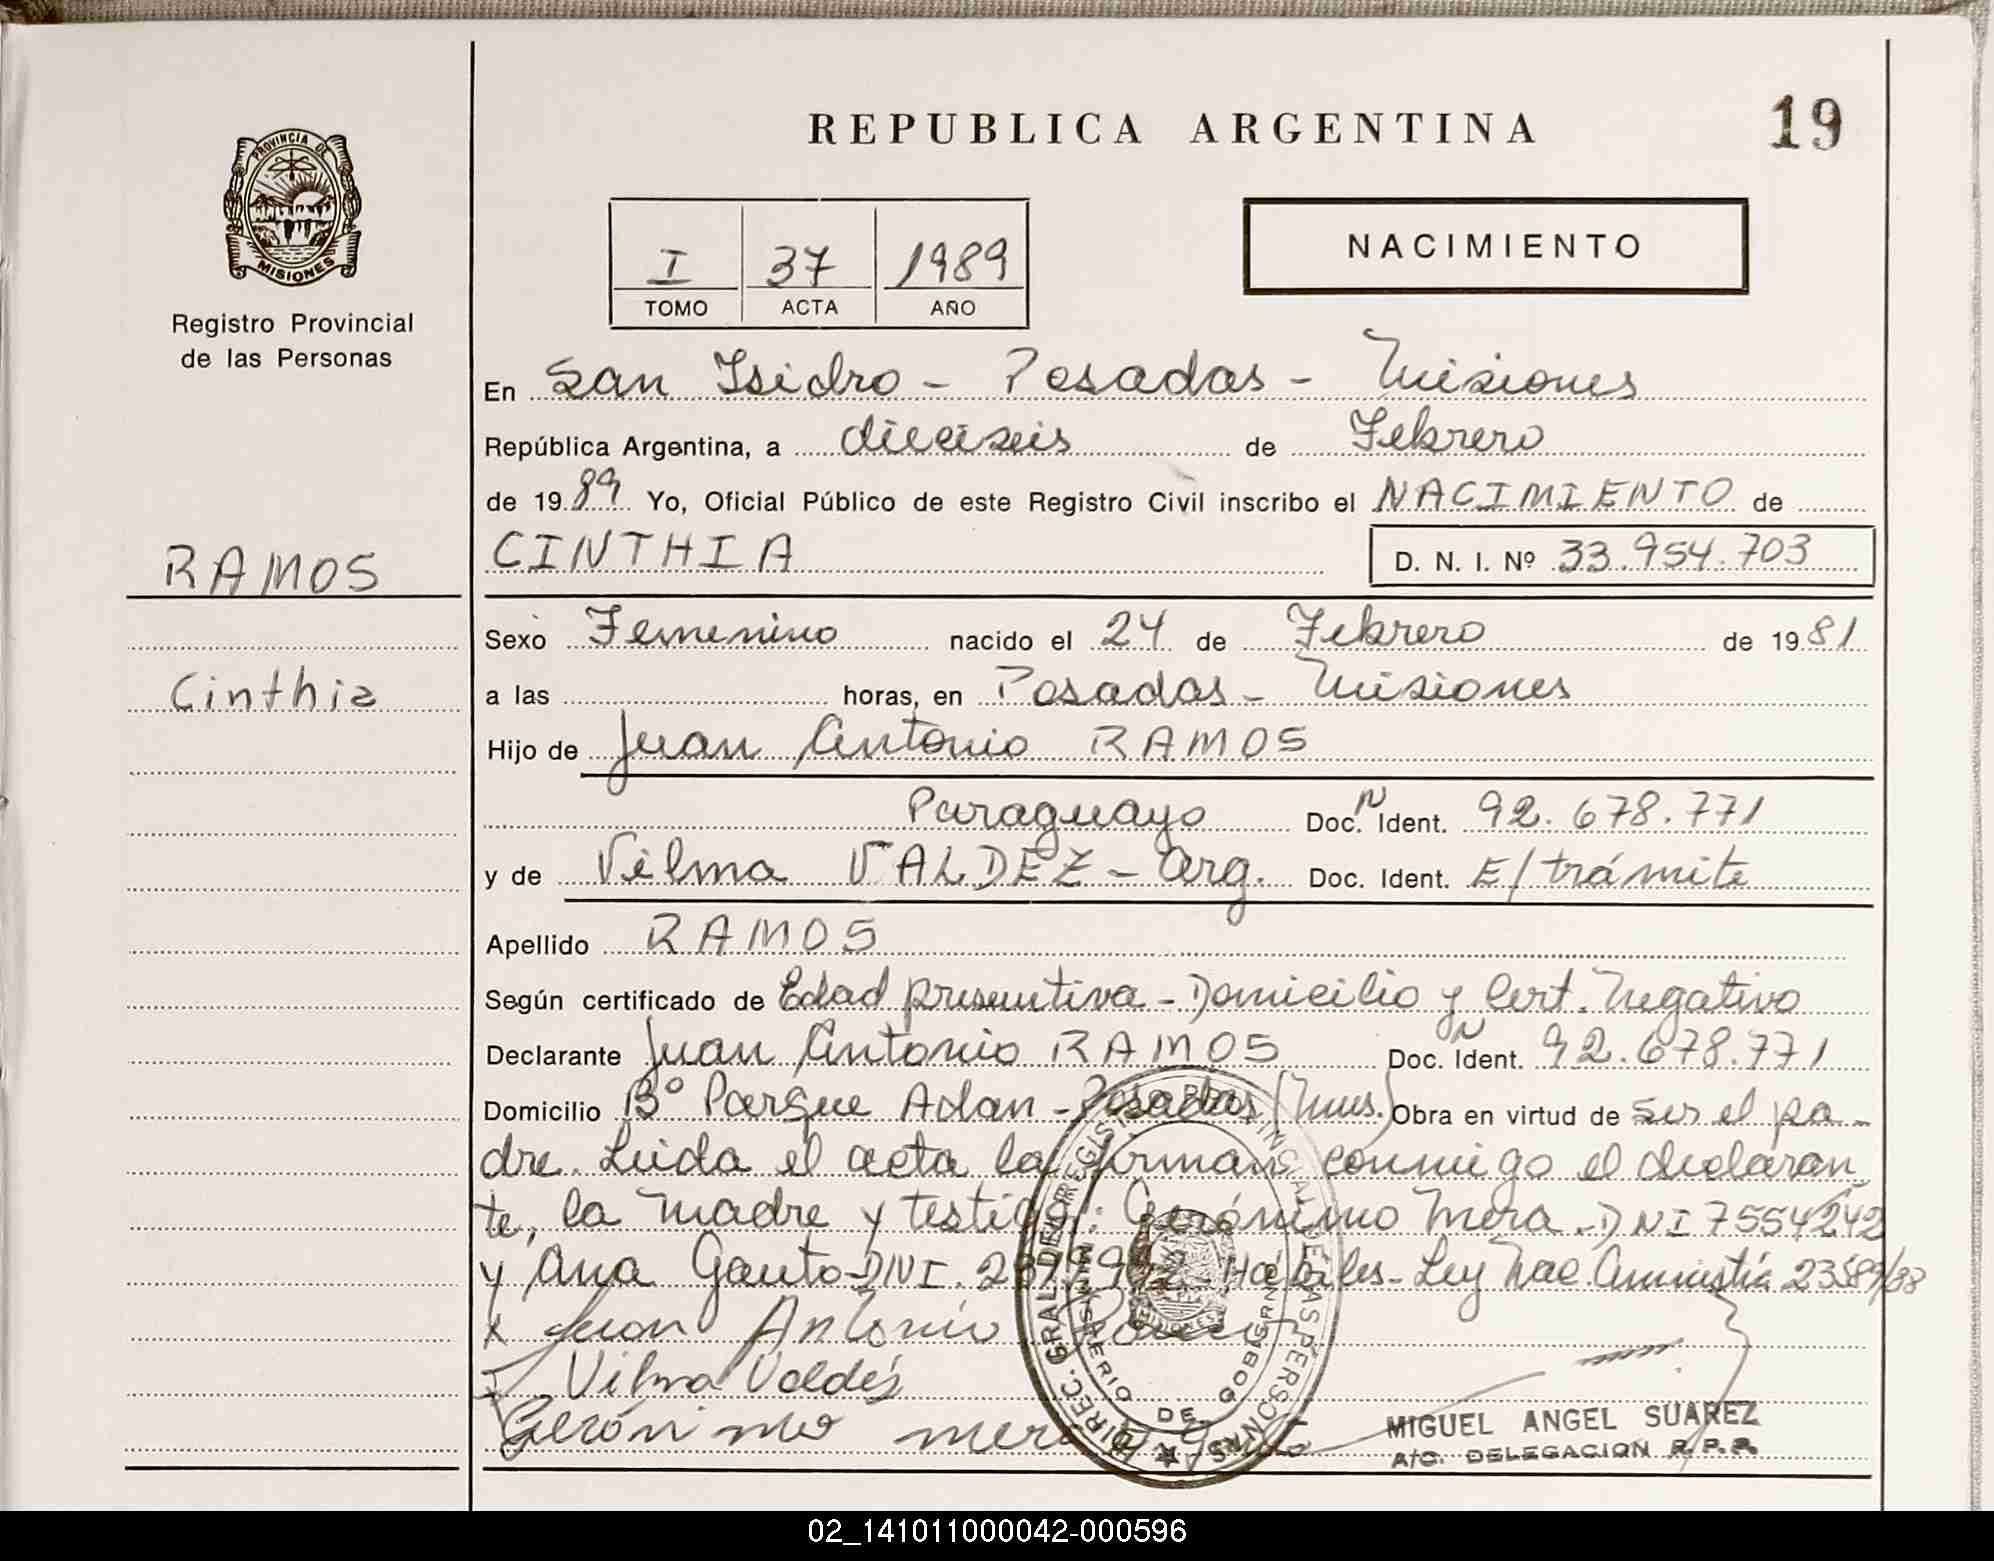 REPUBLICA ARGENTINA
19
PROVINCIA DE
MISIONES
Registro Provincial
de las Personas
I 37 1989
TOMO ACTA AÑO
NACIMIENTO
En San Isidro - Posadas - Misiones
República Argentina, a dieciseis de Febrero
de 1989 Yo, Oficial Público de este Registro Civil inscribo el NACIMIENTO de
RAMOS
CINTHIA
D. N. I. Nº 33.954.703
Sexo Femenino nacido el 24 de Febrero de 1981
Cinthia
a las horas, en Posadas - Misiones
Hijo de Juan Antonio RAMOS
Paraguayo Doc. N Ident. 92.678.771
y de Vilma VALDEZ - Arg. Doc. Ident. E/trámite
Apellido RAMOS
Según certificado de Edad presuntiva - Domicilio y Cert. Negativo
Declarante Juan Antonio RAMOS Doc. N Ident. 92.678.771
Domicilio Bº Parque Adan - Posadas (Mnes.) Obra en virtud de ser el pa-
dre. Leida el acta la firman conmigo el declaran
te, la madre y testigos: Gerónimo Mera - DNI 7554242
y Ana Gauto - DNI. Hábiles - Ley Nac. Amnistía 23589/88
x Juan Antonio Ramos
Vilma Valdés
Gerónimo mera
DIREC. GRAL. DEL REGISTRO PROVINCIAL DE LAS PERSONAS
MINISTERIO DE GOBIERNO
MISIONES
MIGUEL ANGEL SUAREZ
A/C. DELEGACION R. P. P.
02_141011000042-000596